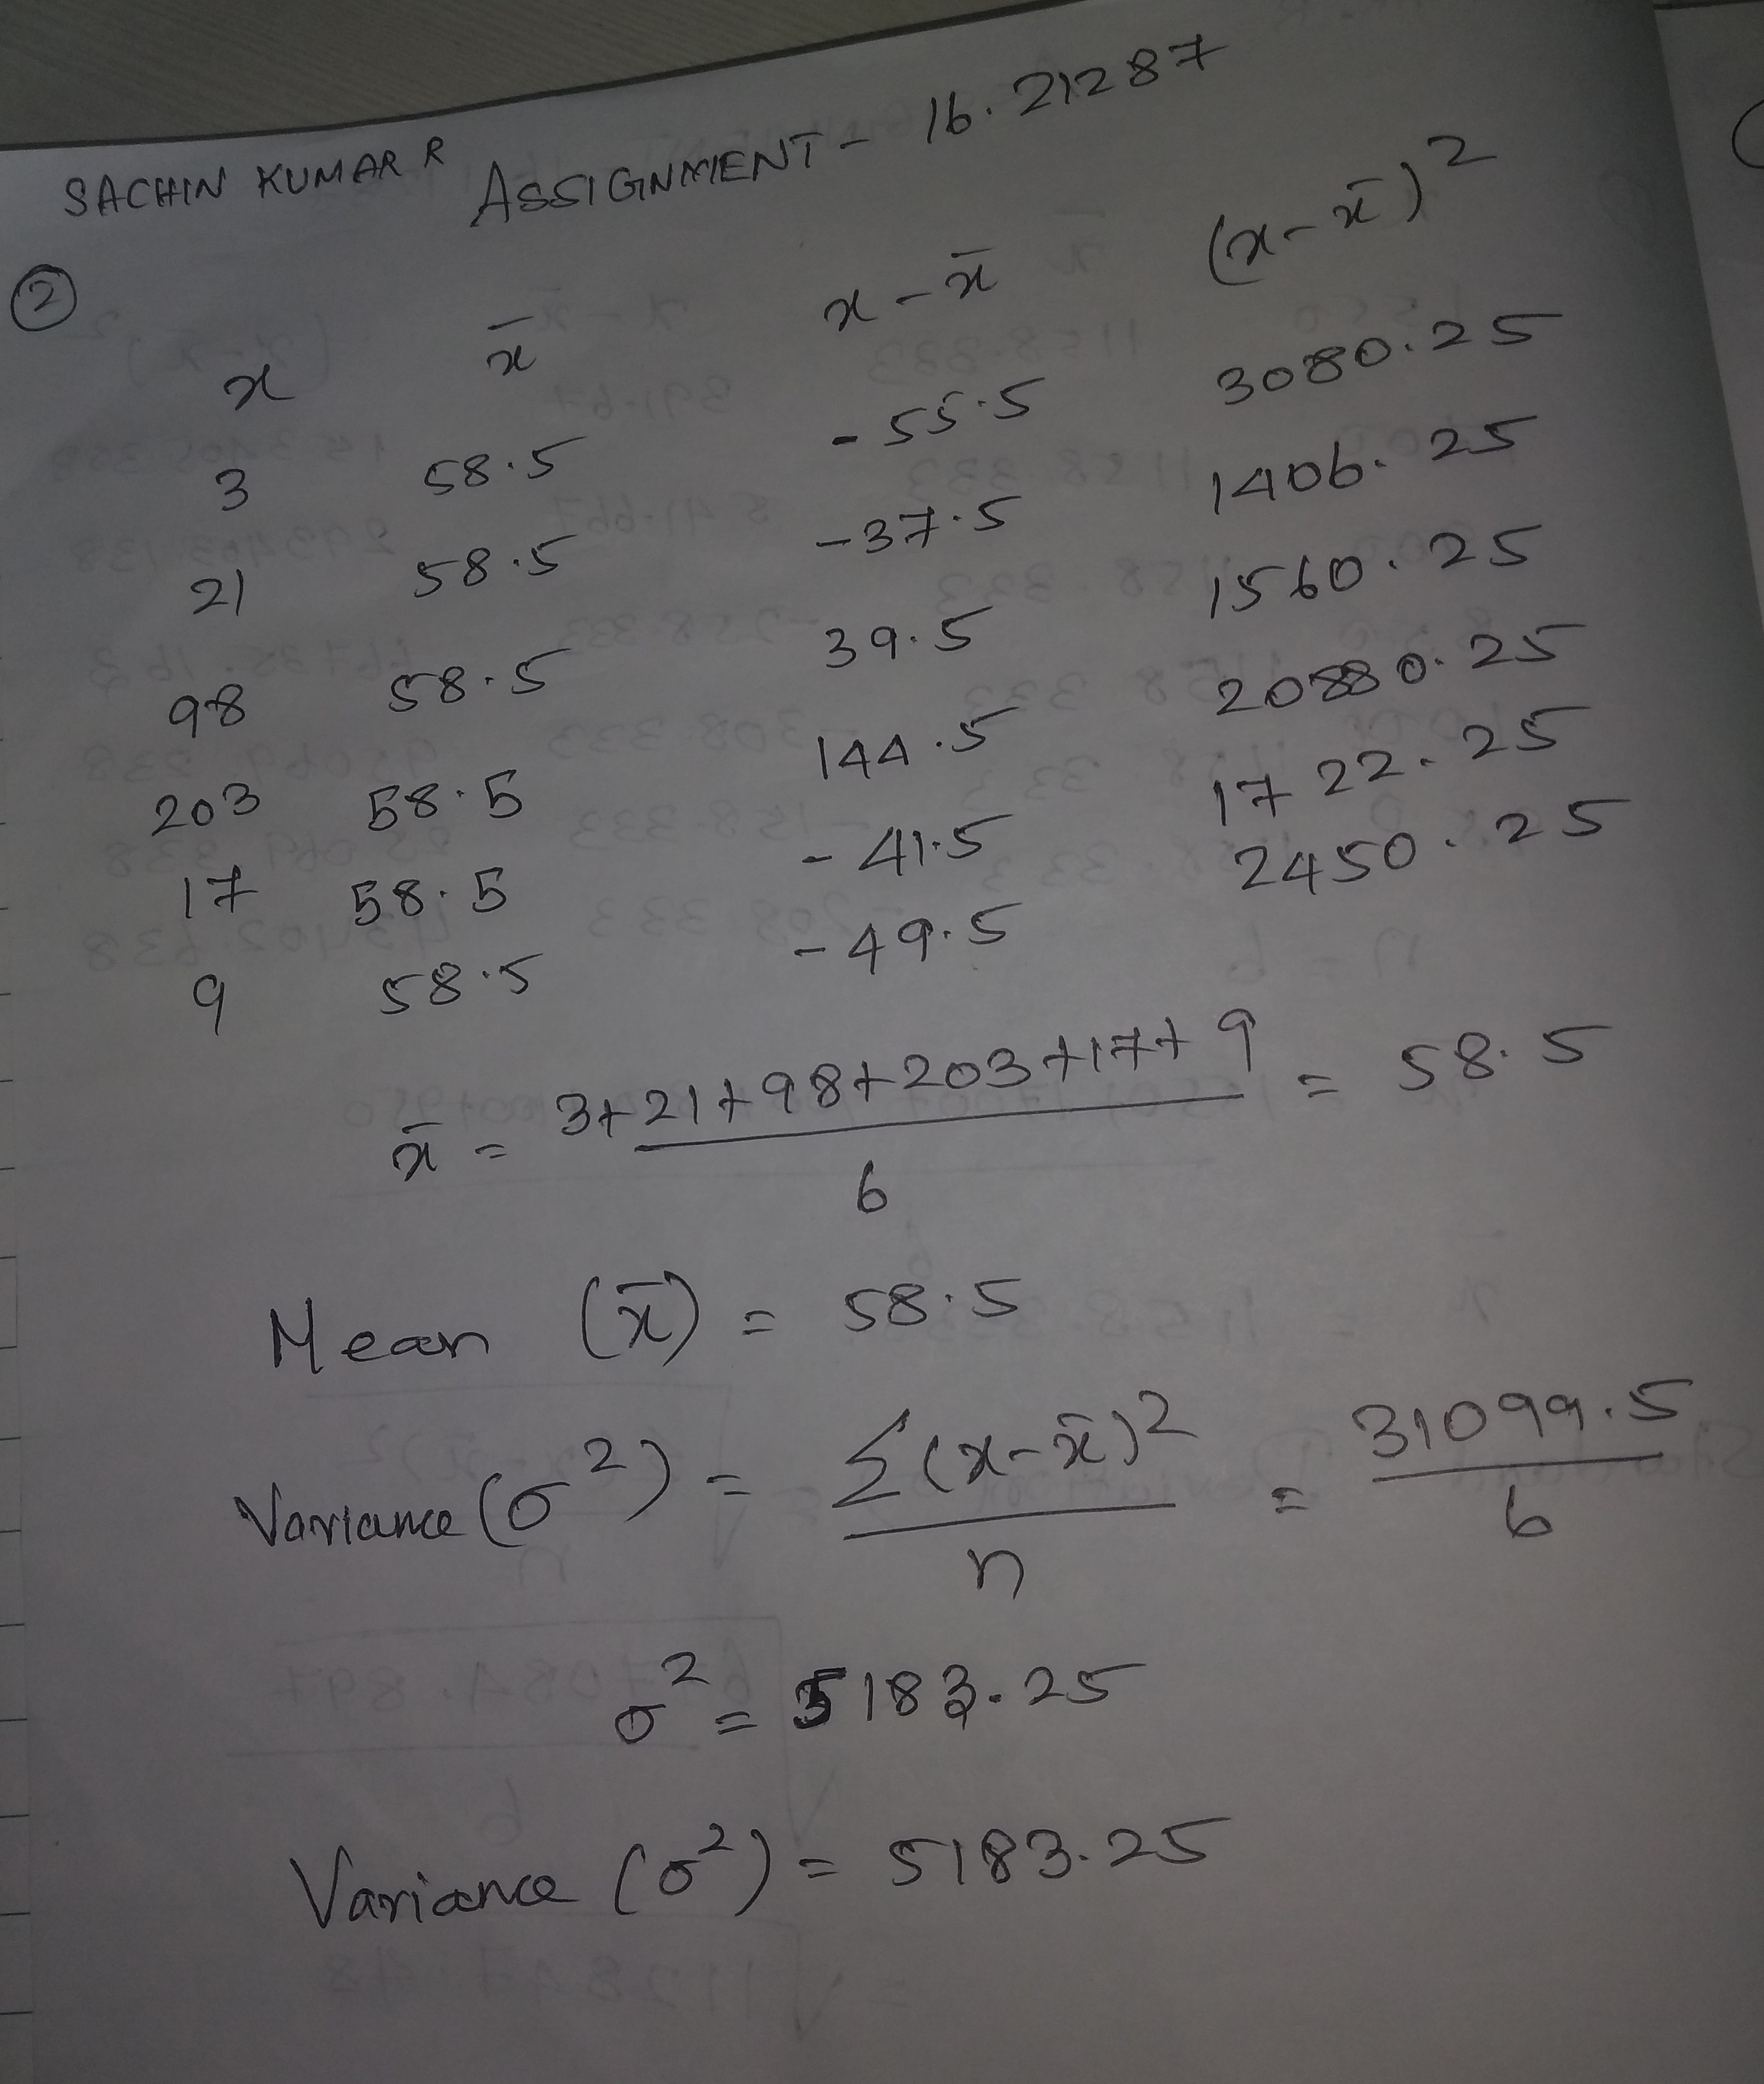 SACHIN KUMAR R ASSIGNMENT - 16.21287
② x x̄ x - x̄ (x - x̄)²
3 58.5 - 55.5 3080.25
21 58.5 - 37.5 1406.25
98 58.5 39.5 1560.25
203 58.5 144.5 20880.25
17 58.5 - 41.5 1722.25
9 58.5 - 49.5 2450.25
x̄ = 3+21+98+203+17+9 / 6 = 58.5
Mean (x̄) = 58.5
Variance (σ²) = Σ(x-x̄)² / n = 31099.5 / 6
σ² = 5183.25
Variance (σ²) = 5183.25